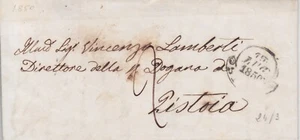 1850
All Sigr Vincenzo Lamberti
Direttore della Dogana di
Pistoia
1850
26/3